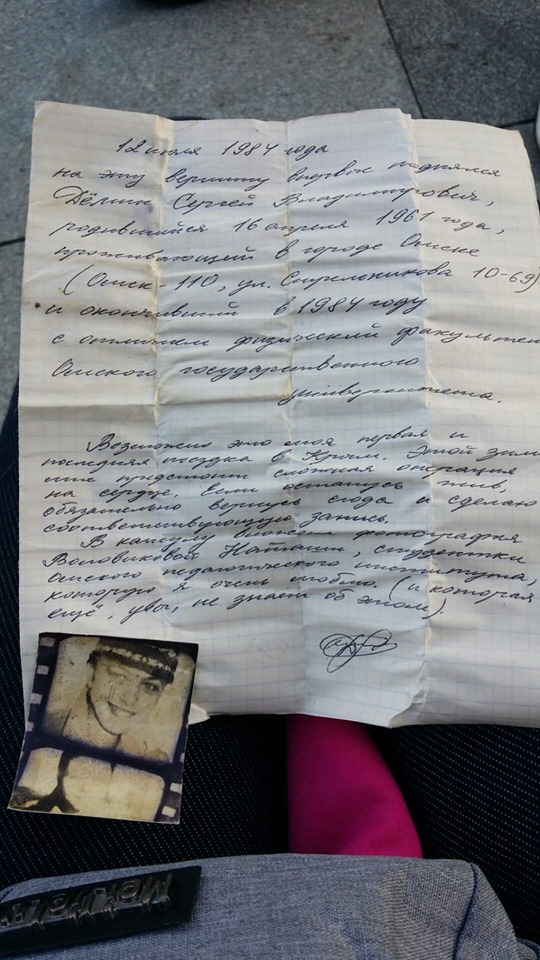 12 июля 1984 года
на эту вершину впервые поднялся
Дёмин Сергей Владимирович,
родившийся 16 апреля 1961 года,
проживающий в городе Омске
(Омск-110, ул. Стрельникова 10-69)
и окончивший в 1984 году
с отличием физический факультет
Омского государственного
университета.
Возможно это моя первая и
последняя поездка в Крым. Этой зимой
мне предстоит сложная операция
на сердце. Если останусь жив,
обязательно вернусь сюда и сделаю
соответствующую запись.
В капсулу вложена фотография
Наташи, студентки
Омского педагогического института,
которую я очень люблю. (и которая
ещё, увы, не знает об этом)